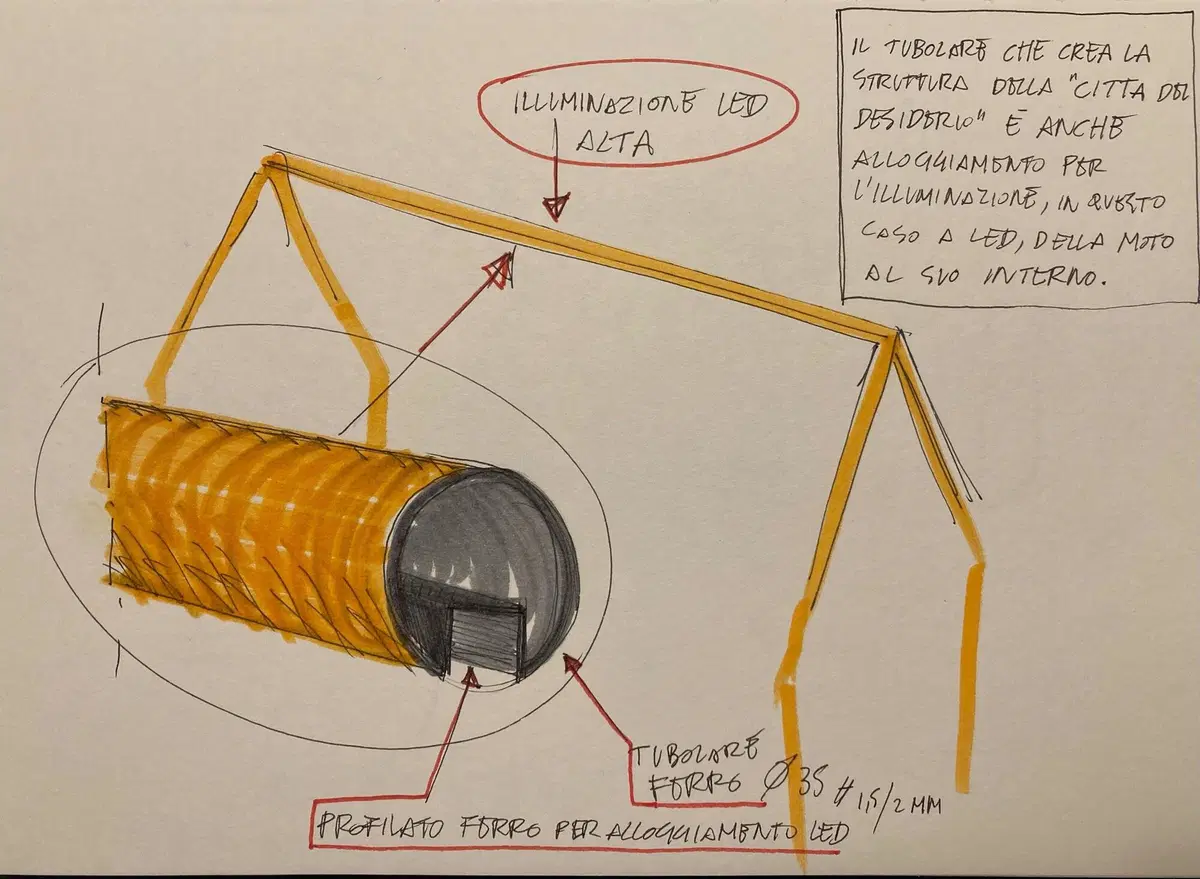 ILLUMINAZIONE LED
ALTA
IL TUBOLARE CHE CREA LA
STRUTTURA DELLA "CITTA DEL
DESIDERIO" È ANCHE
ALLOGGIAMENTO PER
L'ILLUMINAZIONE, IN QUESTO
CASO A LED, DELLA MOTO
AL SUO INTERNO.
TUBOLARE
FERRO Ø 35 # 1,5/2 MM
PROFILATO FERRO PER ALLOGGIAMENTO LED